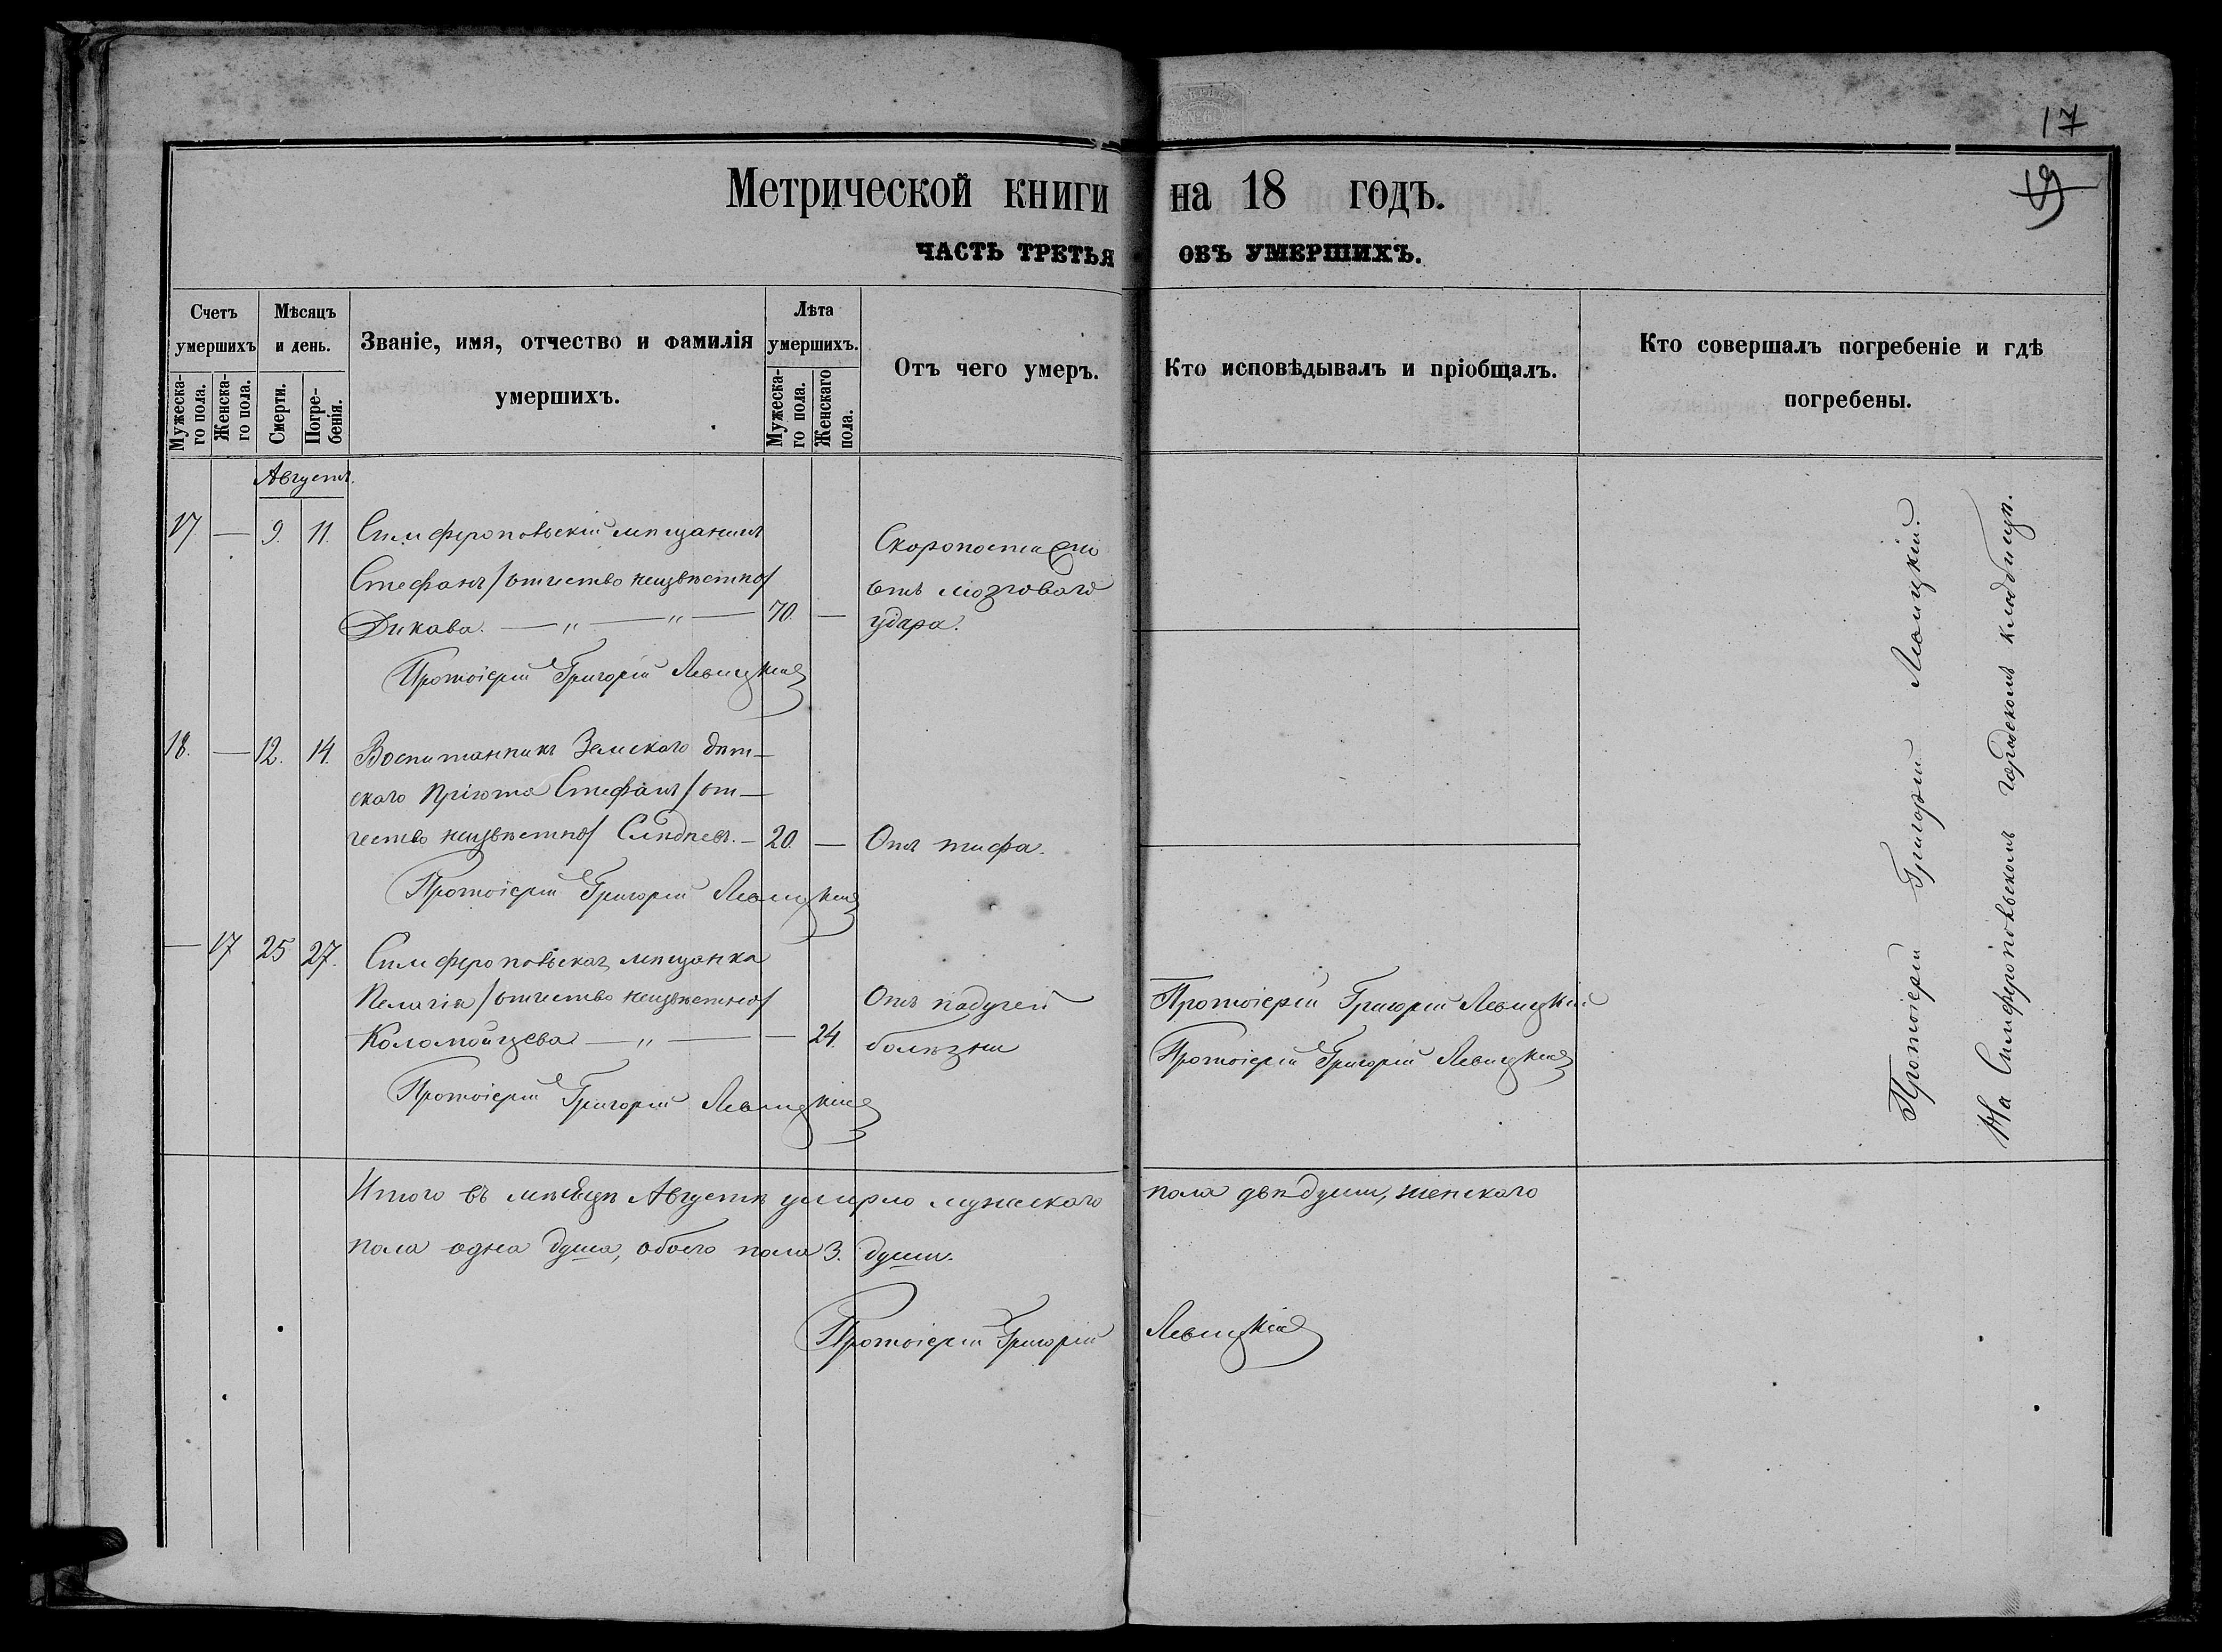 17
19
Метрической книги на 18 годъ.
ЧАСТЬ ТРЕТЬЯ ОБЪ УМЕРШИХЪ.
Счетъ умершихъ
Мужеска-го пола.
Женска-го пола.
Мѣсяцъ и день.
Смерти.
Погре-бенія.
Званіе, имя, отчество и фамилія
умершихъ.
Лѣта умершихъ.
Мужеска-го пола.
Женскаго пола.
Отъ чего умеръ.
Кто исповѣдывалъ и пріобщалъ.
Кто совершалъ погребеніе и гдѣ
погребены.
Августъ.
17. — 9. 11. Симферопольскій мѣщанинъ
Стефанъ /отчество неизвѣстно/
Дикова. — „ — „ — 70. —
Скоропостижно
отъ мозговаго
удара.
Протоіерей Григорій Левицкій
18. — 12. 14. Воспитанникъ Земскаго дѣт-
скаго пріюта Стефанъ /от-
чество неизвѣстно/ Слѣдневъ. — 20. — Отъ тифа.
Протоіерей Григорій Левицкій
— 17 25 27. Симферопольская мѣщанка
Пелагія /отчество неизвѣстно/
Коломойцева — „ — — 24.
Отъ падучей
болѣзни
Протоіерей Григорій Левицкій
Протоіерей Григорій Левицкій
Протоіерей Григорій Левицкій
Протоіерей Григорій Левицкій.
На Симферопольскомъ городскомъ кладбищѣ.
Итого въ мѣсяцѣ Августѣ умерло мужескаго пола двѣ души, женскаго
пола одна душа, обоего пола 3. души.
Протоіерей Григорій Левицкій